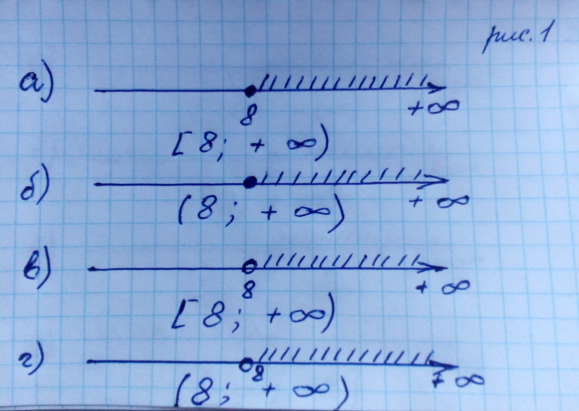 рис. 1
а)
8
+∞
[8; +∞)
б)
+∞
(8; +∞)
в)
8
+∞
[8; +∞)
г)
8
+∞
(8; +∞)